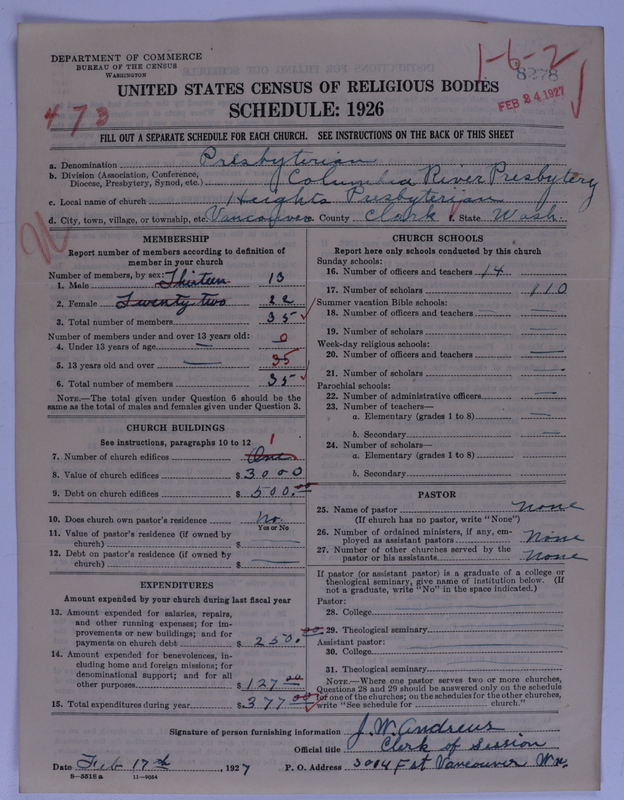 DEPARTMENT OF COMMERCE
BUREAU OF THE CENSUS
WASHINGTON
1-6-2
8278
FEB 24 1927
473
UNITED STATES CENSUS OF RELIGIOUS BODIES
SCHEDULE: 1926
FILL OUT A SEPARATE SCHEDULE FOR EACH CHURCH. SEE INSTRUCTIONS ON THE BACK OF THIS SHEET
a. Denomination Presbyterian
b. Division (Association, Conference, Diocese, Presbytery, Synod, etc.) Columbia River Presbytery
c. Local name of church Heights Presbyterian
d. City, town, village, or township, etc. Vancouver e. County Clark f. State Wash.
MEMBERSHIP
Report number of members according to definition of
member in your church
Number of members, by sex:
1. Male Thirteen 13
2. Female Twenty two 22
3. Total number of members 35
Number of members under and over 13 years old:
4. Under 13 years of age 0
5. 13 years old and over 35
6. Total number of members 35
NOTE.—The total given under Question 6 should be the
same as the total of males and females given under Question 3.
CHURCH BUILDINGS
See instructions, paragraphs 10 to 12
7. Number of church edifices One 1
8. Value of church edifices $ 3000
9. Debt on church edifices $ 500.00
10. Does church own pastor's residence No.
Yes or No
11. Value of pastor's residence (if owned by
church) $
12. Debt on pastor's residence (if owned by
church) $
EXPENDITURES
Amount expended by your church during last fiscal year
13. Amount expended for salaries, repairs,
and other running expenses; for im-
provements or new buildings; and for
payments on church debt $ 250.00
14. Amount expended for benevolences, in-
cluding home and foreign missions; for
denominational support; and for all
other purposes $ 127 00
15. Total expenditures during year $ 377 00
CHURCH SCHOOLS
Report here only schools conducted by this church
Sunday schools:
16. Number of officers and teachers 14
17. Number of scholars 110
Summer vacation Bible schools:
18. Number of officers and teachers
19. Number of scholars
Week-day religious schools:
20. Number of officers and teachers
21. Number of scholars
Parochial schools:
22. Number of administrative officers
23. Number of teachers—
a. Elementary (grades 1 to 8)
b. Secondary
24. Number of scholars—
a. Elementary (grades 1 to 8)
b. Secondary
PASTOR
25. Name of pastor None
(If church has no pastor, write "None")
26. Number of ordained ministers, if any, em-
ployed as assistant pastors None
27. Number of other churches served by the
pastor or his assistants None
If pastor (or assistant pastor) is a graduate of a college or
theological seminary, give name of institution below. (If
not a graduate, write "No" in the space indicated.)
Pastor:
28. College
29. Theological seminary
Assistant pastor:
30. College
31. Theological seminary
NOTE.—Where one pastor serves two or more churches,
Questions 28 and 29 should be answered only on the schedule
for one of the churches; on the schedules for the other churches,
write "See schedule for church."
Signature of person furnishing information J. W. Andrews
Official title Clerk of Session
Date Feb 17th, 1927 P. O. Address 3014 F st Vancouver Wn.
8-5518 a 11-9064